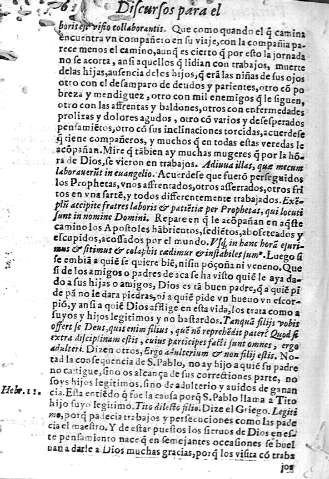 Discursos para el
boris est visio collaborantis. Que como quando el q̃ camina
encuentra vn compañero en su viaje, con la compañia pa
rece menos el camino, aunq̃ es cierto q̃ por esso la jornada
no se acorta, ansi aquellos q̃ lidian con trabajos, muerte
delas hijas, ausencia deles hijos, q̃ erã las niñas de sus ojos
otro con el desamparo de deudos y parientes, otro cõ po
breza y mendiguez, otro con mil enemigos q̃ le siguen,
otro con las affrentas y baldones, otros con enfermedades
prolixas y dolores agudos, otro cõ varios y desesperados
pensamiẽtos, otro cõ sus inclinaciones torcidas, acuerdese
q̃ tiene compañeros, y muchos q̃ en todas estas veredas le
acõpañan. Mire q̃ tãbien ay muchas mugeres q̃ por la hõ
ra de Dios, se vieton en trabajos. Adiuua illas, quæ mecum
laborauerũt in euangelio. Acuerdese que fuerõ perseguidos
los Prophetas, vnos affrentados, otros asserrados, otros fri
tos en vna sartẽ, y todos differentemente trabajados. Exẽ
plũ accipite fratres laboris & patiẽtiæ per Prophetas, qui locuti
sunt in nomine Domini. Repare en q̃ le acõpañan en aqueste
camino los Apostoles hãbriẽtos, sediẽtos, abofeteados y
escupidos, acossados por el mundo. Vsq; in hanc horã esuri-
mus & sitimus & colaphis cædimur & instabiles sum⁹. Luego si
se embiã a quiẽ se quiere biẽ, ni sõ põçoña ni veneno. Que
si de los amigos o padres de aca se ha visto quiẽ le aya da-
do a sus hijos o amigos, Dios es tã buen padre, q̃ a quiẽ pi
de pã no le dara piedras, ni a quiẽ pide vn hueuo vn escor-
piõ, y ansi a quiẽ Dios aflige en esta vida, los trata como a
suyos y hijos legitimos y no bastardos. Tanquã filijs vobis
offert se Deus, quis enim filius, quẽ nõ reprehẽdit pater? Quòd si
extra disciplinam estis, cuius participes facti sunt omnes, ergo
adulteri. Dizen otros, Ergo adulterium & non filij estis. No-
tad la consequencia de S. Pablo, no ay hijo a quiẽ su padre
no castigue, sino os alcança de sus correctiones parte, no
soys hijos legitimos, sino de adulterio y auidos de ganan
Hebr. 12.
cia. Esta entiẽdo q̃ fue la causa porq̃ S. Pablo llama a Tito
hijo suyo legitimo. Tito dilecto filio. Dize el Griego. Legiti
mo, porq̃ padecia trabajos y persecuciones como las pade
cia el maestro. Y de estar puestos los sieruos de Dios en es
te pensamiento nace q̃ en semejantes occasiones se buel
uan a darle a Dios muchas gracias, porq̃ los visita cõ traba
jos